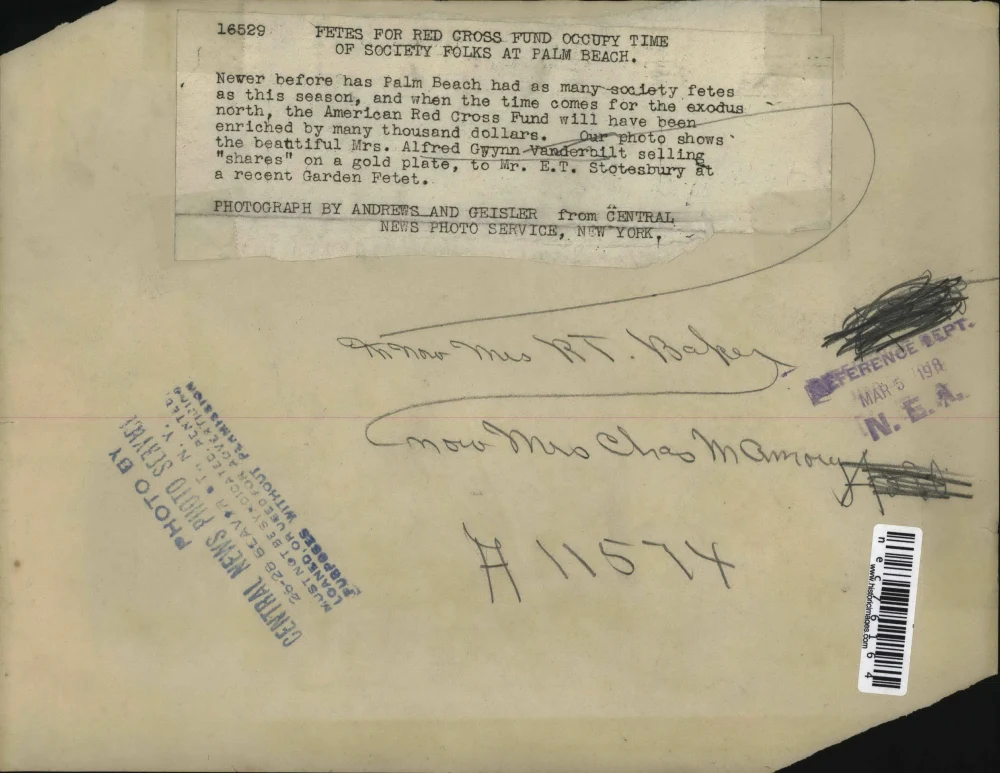 16529 FETES FOR RED CROSS FUND OCCUPY TIME
OF SOCIETY FOLKS AT PALM BEACH.
Never before has Palm Beach had as many society fetes
as this season, and when the time comes for the exodus
north, the American Red Cross Fund will have been
enriched by many thousand dollars. Our photo shows
the beatiful Mrs. Alfred Gwynn Vanderbilt selling
"shares" on a gold plate, to Mr. E.T. Stotesbury at
a recent Garden Fetet.
PHOTOGRAPH BY ANDREWS AND GEISLER from CENTRAL
NEWS PHOTO SERVICE, NEW YORK.
now Mrs R T. Baker
REFERENCE DEPT.
MAR 5 191
N. E. A.
now Mrs Chas M Amory
A 11574
PHOTO BY
CENTRAL NEWS PHOTO SERVICE
26-28 BEAVER ST., N. Y.
MUST NOT BE SYNDICATED, RENTED,
LOANED, OR USED FOR ADVERTISING
PURPOSES WITHOUT PERMISSION
www.historicimages.com
nec76164